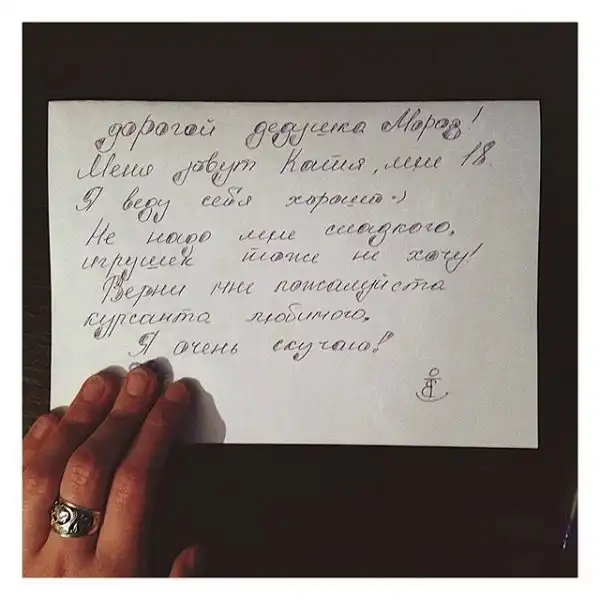 дорогой дедушка Мороз!
Меня зовут Катя, мне 18.
Я веду себя хорошо :)
Не надо мне сладкого,
игрушек тоже не хочу!
Верни мне пожалуйста
курсанта любимого,
Я очень скучаю!